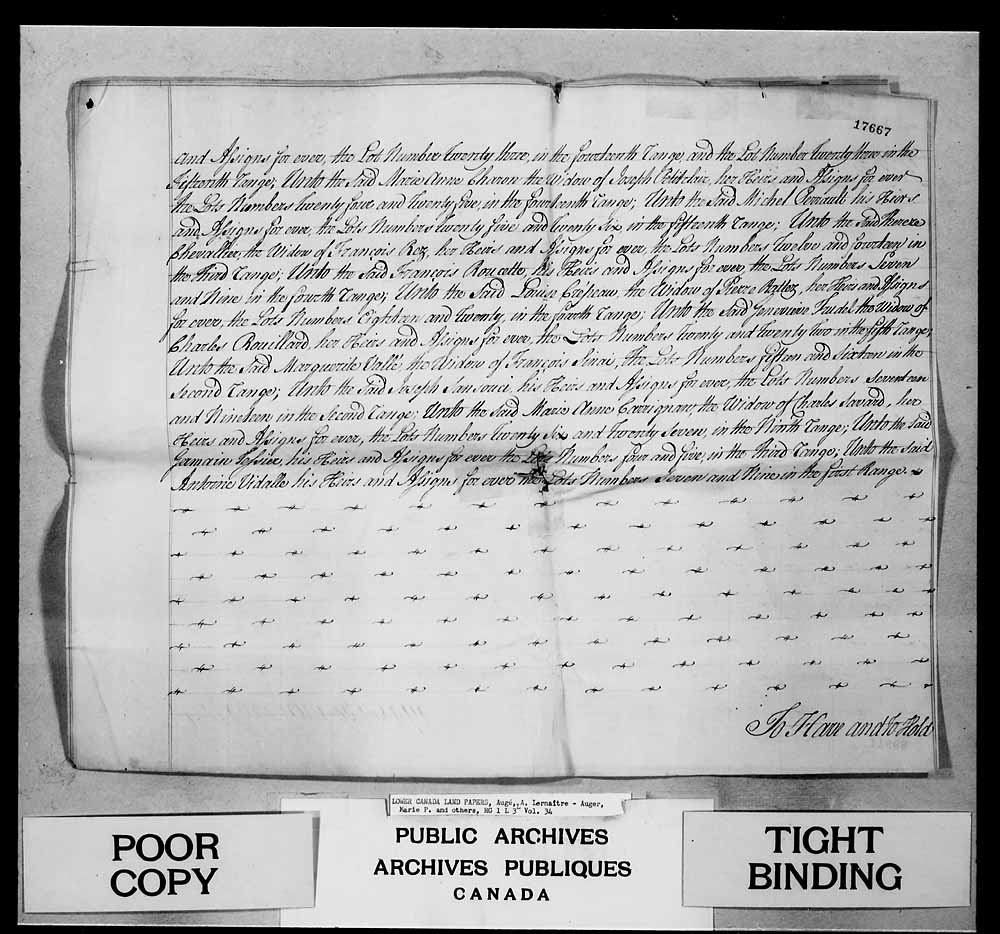 17667
and Assigns for ever, the Lots Number Twenty three, in the fourteenth Range, and the Lot Number Twenty three in the
Fifteenth Range; Unto the Said Marie Anne Charon the Widow of Joseph Petitclair, her Heirs and Assigns for ever
the Lots Numbers Twenty four and twenty five, in the fourteenth range; Unto the Said Michel his Heirs
and Assigns for ever, the Lots Numbers twenty five and twenty Six in the fifteenth Range; Unto the Said Thereze
Chevallier, the Widow of François Rez, her Heirs and Assigns for ever the Lots Numbers Twelve and fourteen in
the third Range; Unto the Said François Roucette, his Heirs and Assigns for ever the Lots Numbers Seven
and Nine in the fourth Range; Unto the Said Louise Crepeau, the Widow of Pierre her Heirs and Assigns
for ever, the Lots Numbers Eighteen and twenty, in the fourth Range; Unto the Said Genevieve the Widow of
Charles Rouillard, her Heirs and Assigns for ever, the Lots Numbers Twenty and twenty two in the fifth Range;
Unto the Said Marguerite Vallé, the Widow of François the Lots Numbers fifteen and Sixteen in the
Second Range; Unto the Said Joseph Sansouci, his Heirs and Assigns for ever, the Lots Numbers Seventeen
and Nineteen in the Second Range; Unto the Said Marie Anne Carrignan, the Widow of Charles Savard, her
Heirs and Assigns for ever, the Lots Numbers Twenty Six and Twenty Seven, in the Ninth Range; Unto the Said
Germain Tessier, his Heirs and Assigns for ever the Lots Numbers four and five, in the third Range; Unto the Said
Antoine Vidalle his Heirs and Assigns for ever the Lots Numbers Seven and Nine in the first Range.
To Have and to Hold
LOWER CANADA LAND PAPERS, Augé, A. Lemaître - Auger,
Marie P. and others, RG 1 L 3 Vol. 34
POOR
COPY
PUBLIC ARCHIVES
ARCHIVES PUBLIQUES
CANADA
TIGHT
BINDING